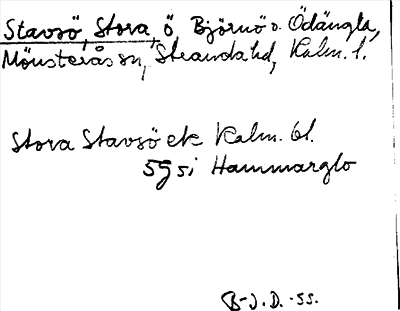 Stavsö, Stora, ö, Björnö o. Ödängla,
Mönsterås sn, Stranda hd, Kalm. l.
Stora Stavsö ek Kalm. bl.
5g si Hammarglo
B-J.D.-55.